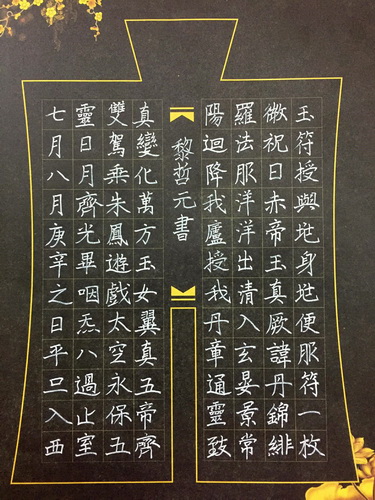 玉符授與兆身兆便服符一枚
微祝曰赤帝玉真厥諱丹錦緋
羅法服洋洋出清入玄晏景常
陽迴降我廬授我丹章通靈致
黎哲元書
真變化萬方玉女翼真五帝齊
雙駕乘朱鳳遊戲太空永保五
靈日月齊光畢咽炁八過止室
七月八月庚辛之日平旦入西